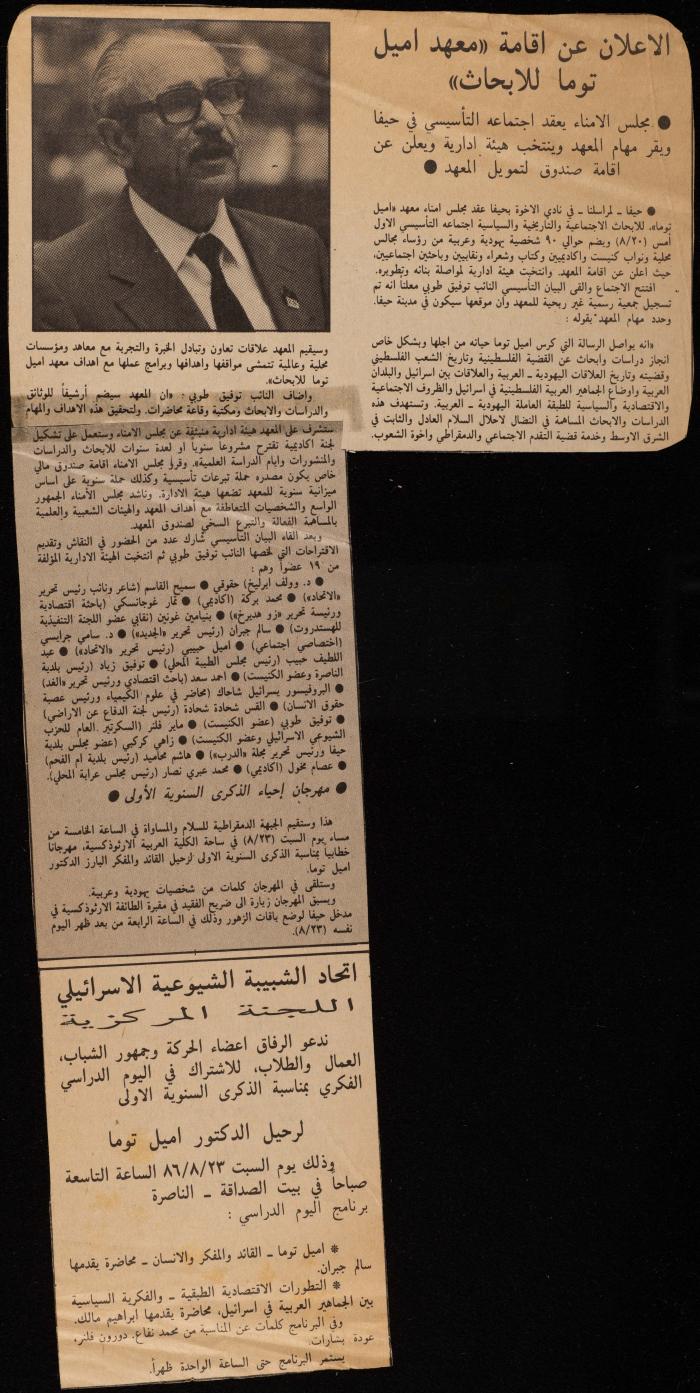 الاعلان عن اقامة «معهد اميل
توما للابحاث»
● مجلس الامناء يعقد اجتماعه التأسيسي في حيفا
ويقر مهام المعهد وينتخب هيئة ادارية ويعلن عن
اقامة صندوق لتمويل المعهد ●
● حيفا ـ لمراسلنا ـ في نادي الاخوة بحيفا عقد مجلس امناء معهد «اميل
توما»، للابحاث الاجتماعية والتاريخية والسياسية اجتماعه التأسيسي الاول
أمس (٨/٢٠) ويضم حوالي ٩٠ شخصية يهودية وعربية من رؤساء مجالس
محلية ونواب كنيست واكاديميين وكتاب وشعراء ونقابيين وباحثين اجتماعيين،
حيث اعلن عن اقامة المعهد. وانتخبت هيئة ادارية لمواصلة بنائه وتطويره.
افتتح الاجتماع والقى البيان التأسيسي النائب توفيق طوبي معلنا انه تم
تسجيل جمعية رسمية غير ربحية للمعهد وأن موقعها سيكون في مدينة حيفا.
وحدد مهام المعهد بقوله :
«انه يواصل الرسالة التي كرس اميل توما حياته من اجلها وبشكل خاص
انجاز دراسات وابحاث عن القضية الفلسطينية وتاريخ الشعب الفلسطيني
وقضيته وتاريخ العلاقات اليهودية ـ العربية والعلاقات بين اسرائيل والبلدان
العربية واوضاع الجماهير العربية الفلسطينية في اسرائيل والظروف الاجتماعية
والاقتصادية والسياسية للطبقة العاملة اليهودية ـ العربية. وتستهدف هذه
الدراسات والابحاث المساهمة في النضال لاحلال السلام العادل والثابت في
الشرق الاوسط وخدمة قضية التقدم الاجتماعي والدمقراطي واخوة الشعوب.
وسيقيم المعهد علاقات تعاون وتبادل الخبرة والتجربة مع معاهد ومؤسسات
محلية وعالمية تتمشى مواقفها واهدافها وبرامج عملها مع اهداف معهد اميل
توما للابحاث».
واضاف النائب توفيق طوبي : «ان المعهد سيضم أرشيفاً للوثائق
والدراسات والابحاث ومكتبة وقاعة محاضرات. ولتحقيق هذه الاهداف والمهام
ستشرف على المعهد هيئة ادارية منبثقة عن مجلس الامناء وستعمل على تشكيل
لجنة اكاديمية تقترح مشروعا سنويا او لعدة سنوات للابحاث والدراسات
والمنشورات وايام الدراسة العلمية». وقرر مجلس الامناء اقامة صندوق مالي
خاص يكون مصدره حملة تبرعات تأسيسية وكذلك حملة سنوية على اساس
ميزانية سنوية للمعهد تضعها هيئة الادارة. وناشد مجلس الأمناء الجمهور
الواسع والشخصيات المتعاطفة مع أهداف المعهد والهيئات الشعبية والعلمية
بالمساهمة الفعالة والتبرع السخي لصندوق المعهد.
وبعد القاء البيان التأسيسي شارك عدد من الحضور في النقاش وتقديم
الاقتراحات التي لخصها النائب توفيق طوبي ثم انتخبت الهيئة الادارية المؤلفة
من ١٩ عضواً وهم :
● د. وولف ايرليخ) حقوقي ● سميح القاسم (شاعر ونائب رئيس تحرير
«الاتحاد») ● محمد بركة (اكاديمي) ● تمار غوجانسكي (باحثة اقتصادية
ورئيسة تحرير «زو هديرخ») ● بنيامين غونين (نقابي عضو اللجنة التنفيذية
للهستدروت) ● سالم جبران (رئيس تحرير «الجديد») ● د. سامي جرايسي
(اختصاصي اجتماعي) ● اميل حبيبي (رئيس تحرير «الاتحاد») ● عبد
اللطيف حبيب (رئيس مجلس الطيبة المحلي) ● توفيق زياد (رئيس بلدية
الناصرة وعضو الكنيست) ● احمد سعد (باحث اقتصادي ورئيس تحرير «الغد)
● البروفيسور يسرائيل شاحاك (محاضر في علوم الكيمياء ورئيس عصبة
حقوق الانسان) ● القس شحادة شحادة (رئيس لجنة الدفاع عن الاراضي)
● توفيق طوبي (عضو الكنيست) ● ماير فلنر (السكرتير العام للحزب
الشيوعي الاسرائيلي وعضو الكنيست) ● زاهي كركبي (عضو مجلس بلدية
حيفا ورئيس تحرير مجلة «الدرب») ● هاشم محاميد (رئيس بلدية ام الفحم)
● عصام مخول (اكاديمي) ● محمد عبري نصار (رئيس مجلس عرابة المحلي).
● مهرجان إحياء الذكرى السنوية الأولى ●
هذا وستقيم الجبهة الدمقراطية للسلام والمساواة في الساعة الخامسة من
مساء يوم السبت (٨/٢٣) في ساحة الكلية العربية الارثوذكسية، مهرجانا
خطابياً بمناسبة الذكرى السنوية الاولى لرحيل القائد والمفكر البارز الدكتور
اميل توما.
وستلقى في المهرجان كلمات من شخصيات يهودية وعربية.
ويسبق المهرجان زيارة الى ضريح الفقيد في مقبرة الطائفة الارثوذكسية في
مدخل حيفا لوضع باقات الزهور وذلك في الساعة الرابعة من بعد ظهر اليوم
نفسه (٨/٢٣).
اتحاد الشبيبة الشيوعية الاسرائيلي
اللجنة المركزية
ندعو الرفاق اعضاء الحركة وجمهور الشباب،
العمال والطلاب، للاشتراك في اليوم الدراسي
الفكري بمناسبة الذكرى السنوية الاولى
لرحيل الدكتور اميل توما
وذلك يوم السبت ٨٦/٨/٢٣ الساعة التاسعة
صباحاً في بيت الصداقة ـ الناصرة
برنامج اليوم الدراسي :
* اميل توما ـ القائد والمفكر والانسان ـ محاضرة يقدمها
سالم جبران.
* التطورات الاقتصادية الطبقية ـ والفكرية السياسية
بين الجماهير العربية في اسرائيل، محاضرة يقدمها ابراهيم مالك.
وفي البرنامج كلمات عن المناسبة من محمد نفاع، دورون فلنر،
عودة بشارات.
يستمر البرنامج حتى الساعة الواحدة ظهراً.